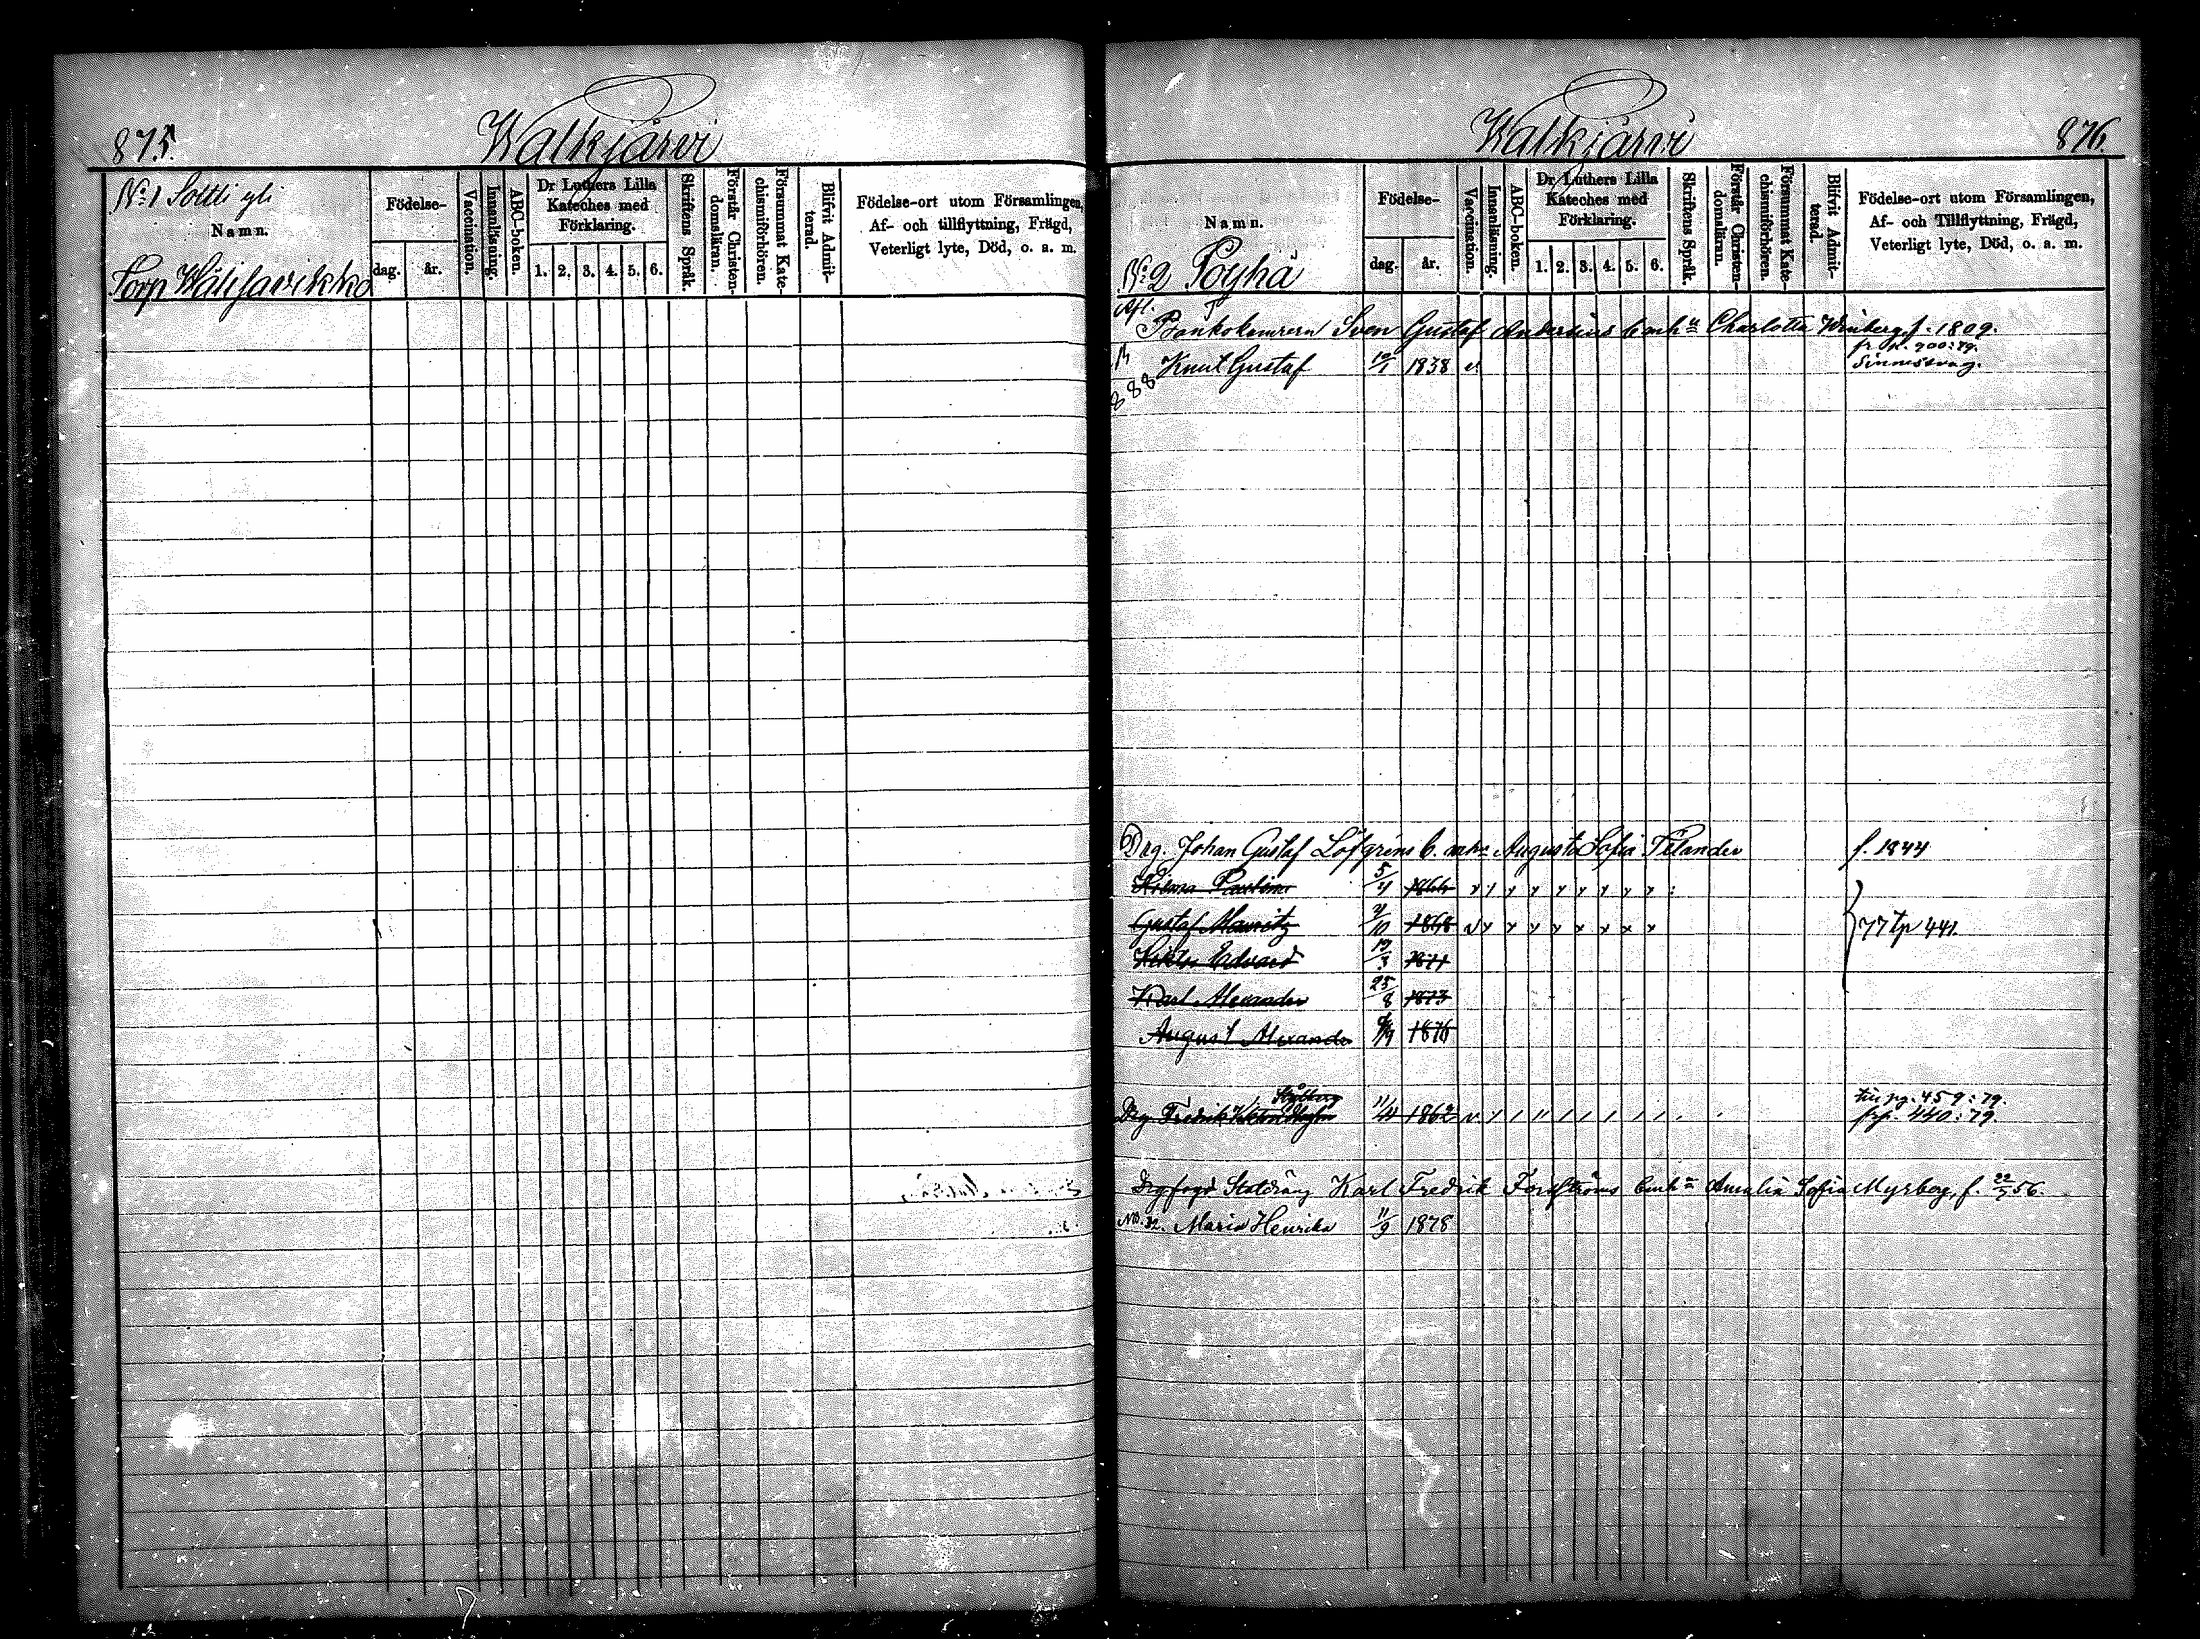 875.
Walkjärvi
No 1 Sottli yli
Namn.
Torp Wälijavikko
Födelse-
dag.
år.
Vaccination.
Innanläsning.
ABC-boken.
Dr Luthers Lilla
Kateches med
Förklaring.
1. 2. 3. 4. 5. 6.
Skriftens Språk.
Förstår Christen-
domsläran.
Försummat Kate-
chismiförhören.
Blifvit Admit-
terad.
Födelse-ort utom Församlingen,
Af- och tillflyttning, Frägd,
Veterligt lyte, Död, o. a. m.
Walkjärvi
876.
Namn.
No 2 Poyhä
Födelse-
dag.
år.
Vaccination.
Innanläsning.
ABC-boken.
Dr Luthers Lilla
Kateches med
Förklaring.
1. 2. 3. 4. 5. 6.
Skriftens Språk.
Förstår Christen-
domsläran.
Försummat Kate-
chismiförhören.
Blifvit Admit-
terad.
Födelse-ort utom Församlingen,
Af- och Tillflyttning, Frägd,
Veterligt lyte, Död, o. a. m.
Afl.
Bankokamrern Sven Gustaf Enkn Charlotta Winberg f. 1809.
fr. p. 900:79.
Knut Gustaf 10/1 1838 v. Sinnessvag.
888
Drg. Johan Gustaf Löfgrens b. mhn Augusta Sofia Felander f. 1844
Paulina 5/4 1866
Gustaf Mauritz 1868 77 tp 441.
Viktor Edvard 19/3 1871
Karl Alexander 25/8 1873
August Alexander 1876
Stålberg
Drg Fredrik 1862
till pg. 459:79.
frp. 440:79.
Statdräng Karl Fredrik Forsströms Enkn Amalia Sofia Myrberg, f. 56.
Maria Henrika 11/9 1878